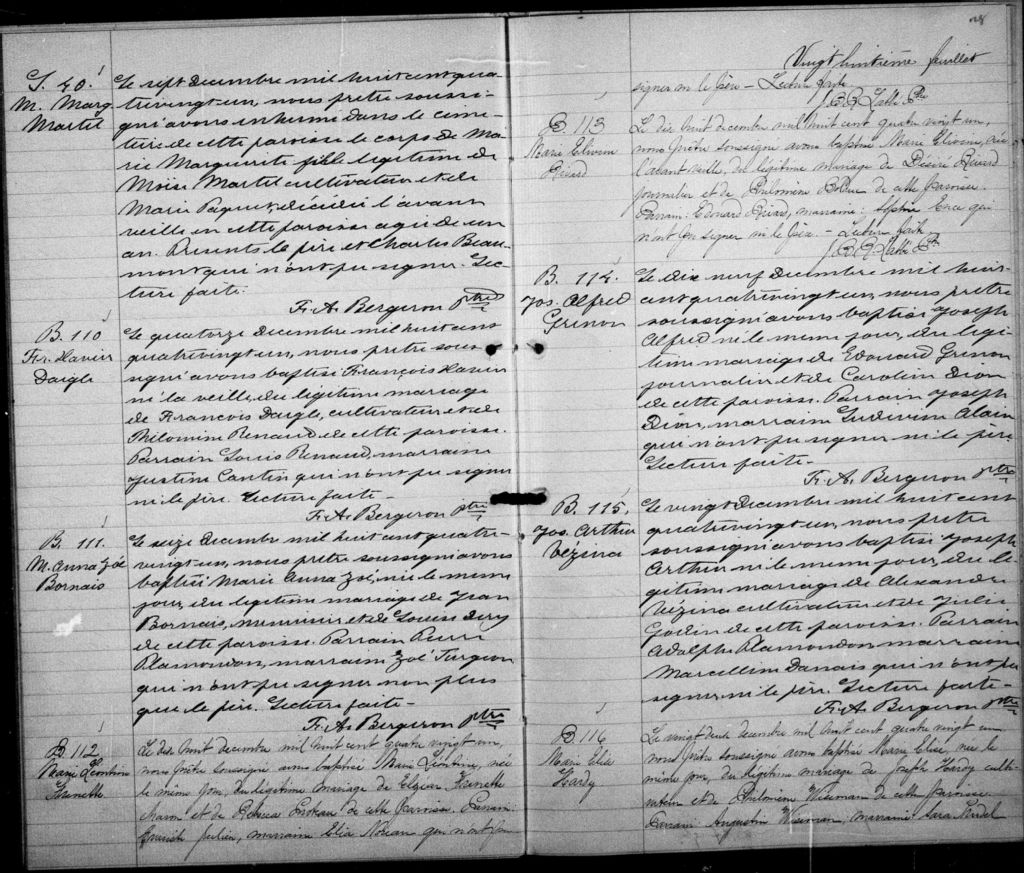 S. 40.
M. Marg.
Martel
Le sept decembre mil huit cent qua-
trevingt un, nous pretre soussi-
gné avons inhumé dans le cime-
tiere de cette paroisse le corps de Ma-
rie Marguerite fille legitime de
Moïse Martel cultivateur et de
Marie Paquet, décédée l'avant
veille en cette paroisse agée de un
an. Presents le père et Charles Beau-
mont qui n'ont pu signer. Lec-
ture faite.
F. A. Bergeron ptre
B. 110
Fr. Xavier
Daigle
Le quatorze decembre mil huit cent
quatrevingt un, nous pretre sous-
signé avons baptisé François Xavier
né la veille, du légitime mariage
de François Daigle, cultivateur et de
Philomène Renaud de cette paroisse.
Parrain Louis Renaud, marraine
Justine Cantin qui n'ont pu signer
ni le père. Lecture faite -
F. A. Bergeron ptre
B. 111.
M. Anna Zoé
Bornais
Le seize decembre mil huit cent quatre-
vingt un, nous pretre soussigné avons
baptisé Marie Anna Zoé, née le meme
jour, du legitime mariage de Jean
Bornais, menuisier et de Louise Dery
de cette paroisse. Parrain Pierre
Plamondon, marraine Zoé Turgeon
qui n'ont pu signer non plus
que le père. Lecture faite -
F. A. Bergeron ptre
B. 112
Marie Léontine
Le dix huit decembre mil huit cent quatre vingt un,
nous Prêtre soussigné avons baptisé Marie Léontine, née
le même jour, du légitime mariage de Elzéar
et de Rebecca de cette Paroisse. Parrain
Julien, marraine qui n'ont pu
28
Vingt huitième feuillet
signer ni le père - Lecture faite
B. 113
Marie
Rivard
Le dix huit decembre mil huit cent quatre vingt un,
nous Prêtre soussigné avons baptisé Marie née
l'avant veille, du légitime mariage de Désiré Rivard
journalier et de Philomène de cette Paroisse.
Parrain: Edouard Rivard, marraine: Sophie qui
n'ont pu signer ni le père. - Lecture faite
B. 114.
Jos. Alfred
Grenon
Le dix neuf Decembre mil huit
cent quatrevingt un, nous pretre
soussigné avons baptisé Joseph
Alfred né le meme jour, du legi-
time mariage de Edouard Grenon
journalier et de Caroline Dion
de cette paroisse. Parrain Joseph
Dion, marraine Ludivine Alain
qui n'ont pu signer ni le père
Lecture faite -
F. A. Bergeron ptre
B. 115.
Jos. Arthur
Vézina
Le vingt Decembre mil huit cent
quatrevingt un, nous pretre
soussigné avons baptisé Joseph
Arthur né le meme jour, du le-
gitime mariage de Alexandre
Vézina cultivateur et de Julie
Godin de cette paroisse. Parrain
Adolphe Plamondon marraine
Marcelline Danais qui n'ont pu
signer, ni le père. Lecture faite -
F. A. Bergeron ptre
B. 116
Marie Elise
Hardy
Le vingt deux decembre mil huit cent quatre vingt un
nous Prêtre soussigné avons baptisé Marie Elise, née le
même jour, du légitime mariage de Joseph Hardy culti-
vateur et de Philomène Wiseman de cette Paroisse.
Parrain: Augustin Wiseman, marraine: Sara